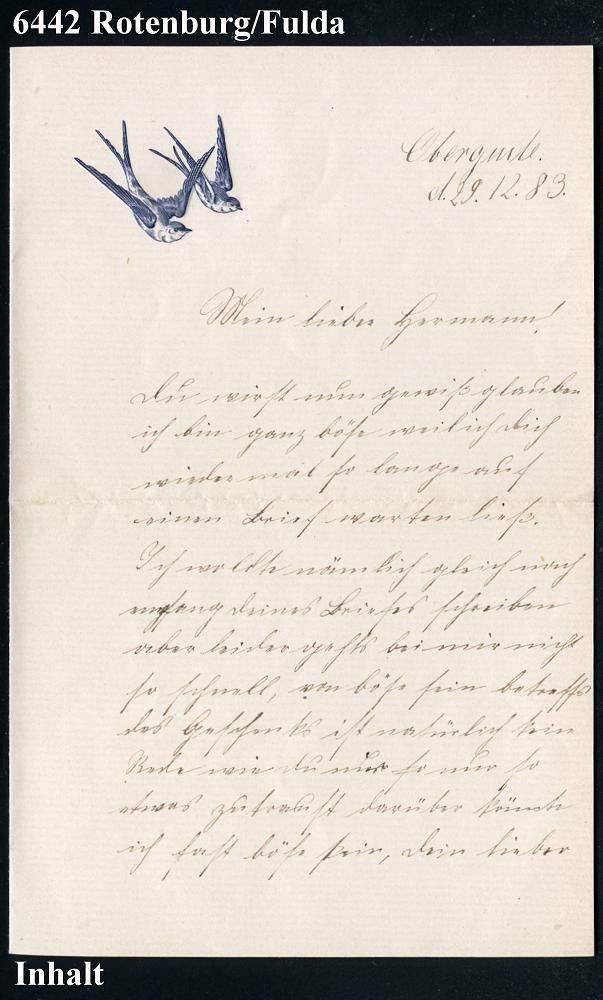 6442 Rotenburg/Fulda
Obergude.
d. 29. 12. 83.
Mein lieber Hermann!
Du wirst nun gewiß glauben
ich bin ganz böse weil ich Dich
wieder mal so lange auf
einen Brief warten ließ.
Ich wollte nämlich gleich nach
empfang deines Briefes schreiben
aber leider gehts bei mir nicht
so schnell, von böse sein betreffs
des Geschenks ist natürlich kein
Rede wie du nur so
etwas zutraust darüber könnte
ich fast böse sein, Dein lieber
Inhalt